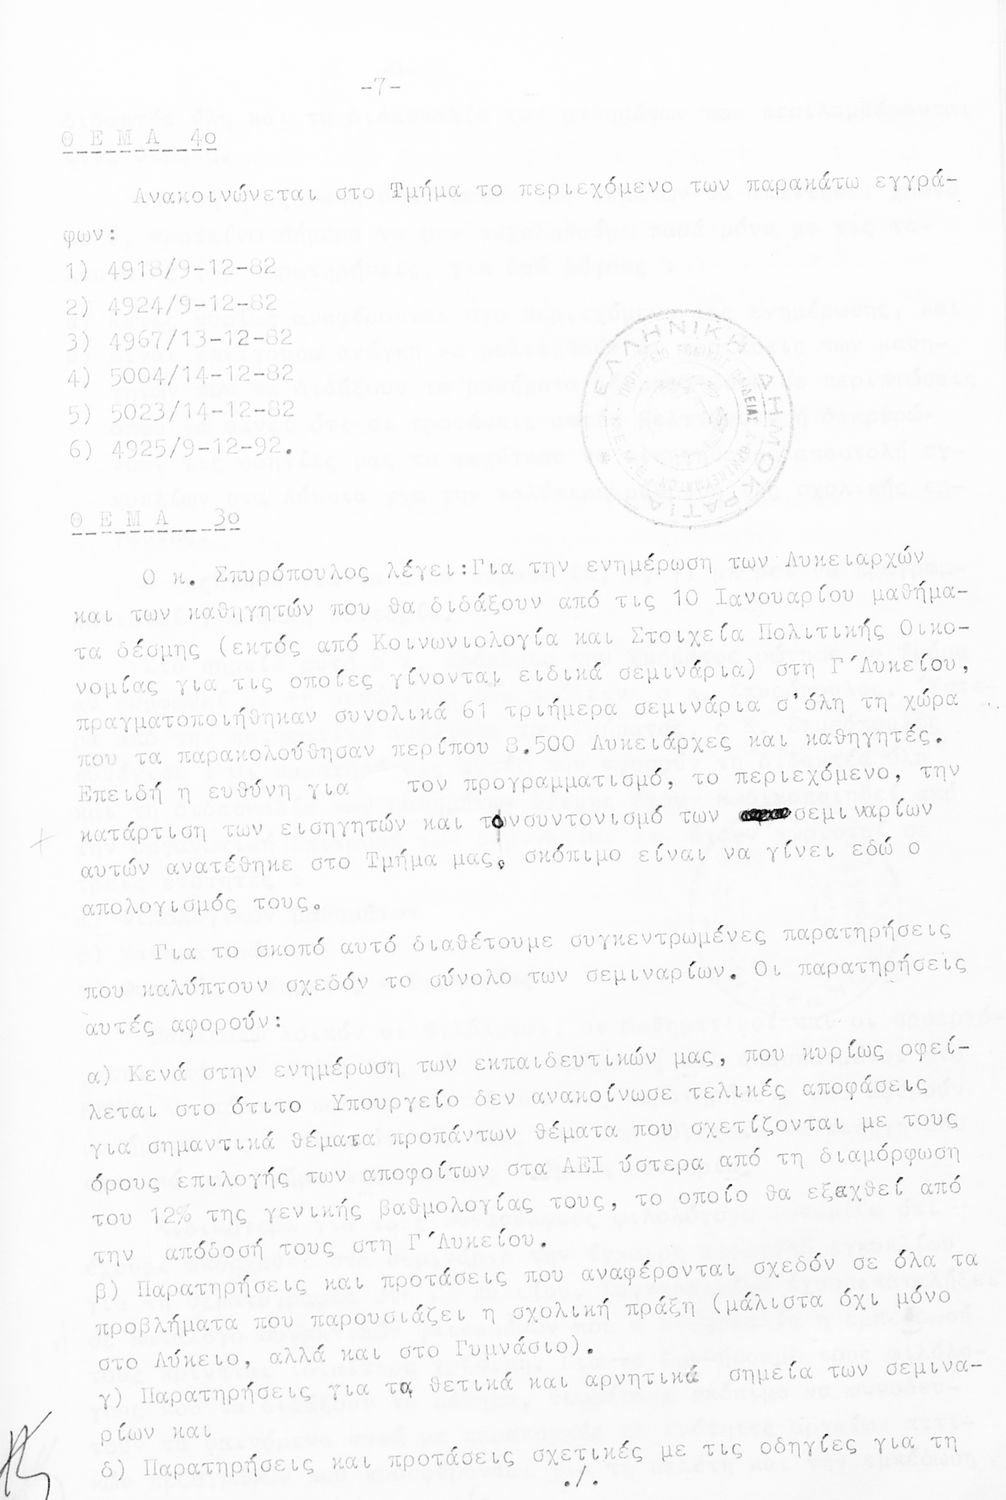 -7-
Θ Ε Μ Α 4ο
Ανακοινώνεται στο Τμήμα το περιεχόμενο των παρακάτω εγγρά-
φων:
1) 4918/9-12-82
2) 4924/9-12-82
3) 4967/13-12-82
4) 5004/14-12-82
5) 5023/14-12-82
6) 4925/9-12-92.
ΕΛΛΗΝΙΚΗ ΔΗΜΟΚΡΑΤΙΑ
Θ Ε Μ Α 3ο
Ο κ. Σπυρόπουλος λέγει:Για την ενημέρωση των Λυκειαρχών
και των καθηγητών που θα διδάξουν από τις 10 Ιανουαρίου μαθήμα-
τα δέσμης (εκτός από Κοινωνιολογία και Στοιχεία Πολιτικής Οικο-
νομίας για τις οποίες γίνονται ειδικά σεμινάρια) στη Γ΄Λυκείου,
πραγματοποιήθηκαν συνολικά 61 τριήμερα σεμινάρια σ'όλη τη χώρα
που τα παρακολούθησαν περίπου 8.500 Λυκειάρχες και καθηγητές.
Επειδή η ευθύνη για τον προγραμματισμό, το περιεχόμενο, την
κατάρτιση των εισηγητών και τονσυντονισμό των σεμιναρίων
αυτών ανατέθηκε στο Τμήμα μας, σκόπιμο είναι να γίνει εδώ ο
απολογισμός τους.
Για το σκοπό αυτό διαθέτουμε συγκεντρωμένες παρατηρήσεις
που καλύπτουν σχεδόν το σύνολο των σεμιναρίων. Οι παρατηρήσεις
αυτές αφορούν:
α) Κενά στην ενημέρωση των εκπαιδευτικών μας, που κυρίως οφεί-
λεται στο ότιτο Υπουργείο δεν ανακοίνωσε τελικές αποφάσεις
για σημαντικά θέματα προπάντων θέματα που σχετίζονται με τους
όρους επιλογής των αποφοίτων στα ΑΕΙ ύστερα από τη διαμόρφωση
του 12% της γενικής βαθμολογίας τους, το οποίο θα εξαχθεί από
την απόδοσή τους στη Γ΄Λυκείου.
β) Παρατηρήσεις και προτάσεις που αναφέρονται σχεδόν σε όλα τα
προβλήματα που παρουσιάζει η σχολική πράξη (μάλιστα όχι μόνο
στο Λύκειο, αλλά και στο Γυμνάσιο).
γ) Παρατηρήσεις για τα θετικά και αρνητικά σημεία των σεμινα-
ρίων και
δ) Παρατηρήσεις και προτάσεις σχετικές με τις οδηγίες για τη
./.